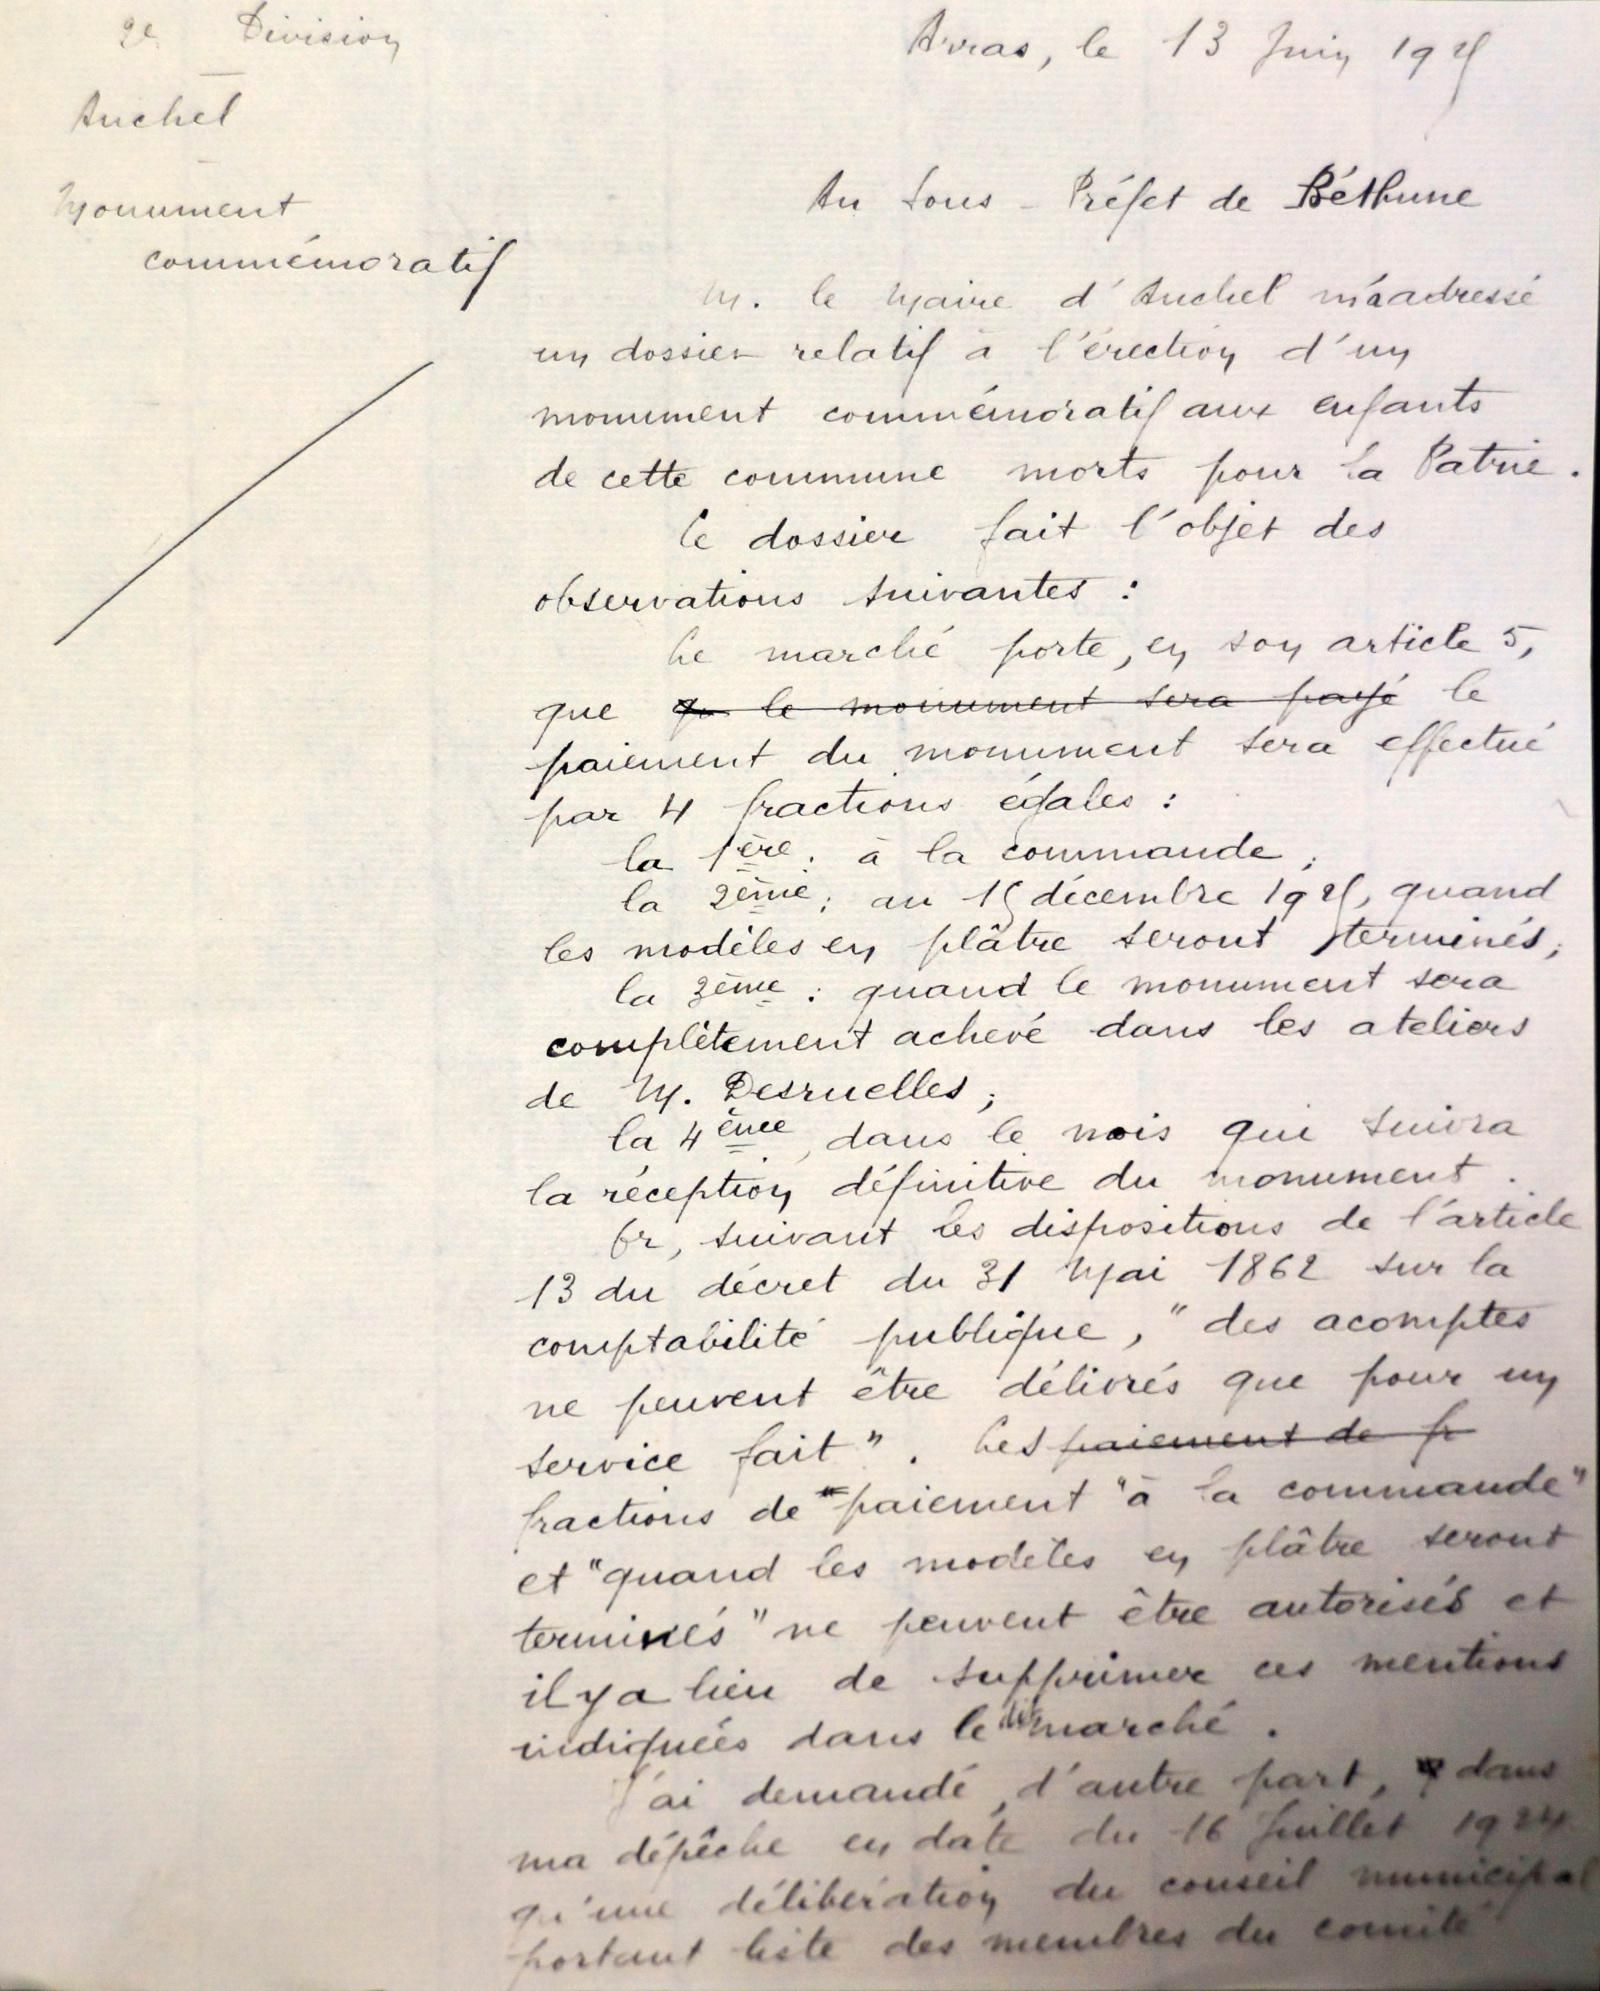 2e Division
Auchel
Monument
commémoratif
Arras, le 13 Juin 1925
Au Sous-Préfet de Béthune
M. le Maire d'Auchel m'a adressé
un dossier relatif à l'érection d'un
monument commémoratif aux enfants
de cette commune morts pour la Patrie.
Ce dossier fait l'objet des
observations suivantes :
Le marché porte, en son article 5,
que qu le monument sera payé le
paiement du monument sera effectué
par 4 fractions égales :
la 1ère : à la commande ;
la 2ème : au 15 décembre 1925, quand
les modèles en plâtre seront terminés ;
la 3ème : quand le monument sera
complètement achevé dans les ateliers
de M. Desruelles ;
la 4ème, dans le mois qui suivra
la réception définitive du monument.
Or, suivant les dispositions de l'article
13 du décret du 31 Mai 1862 sur la
comptabilité publique, "des acomptes
ne peuvent être délivrés que pour un
service fait". Les paiement de fr
fractions de paiement "à la commande"
et "quand les modèles en plâtre seront
terminés" ne peuvent être autorisés et
il y a lieu de supprimer ces mentions
indiquées dans le dit marché.
J'ai demandé, d'autre part, dans
ma dépêche en date du 16 Juillet 1924
qu'une délibération du conseil municipal
portant liste des membres du comité